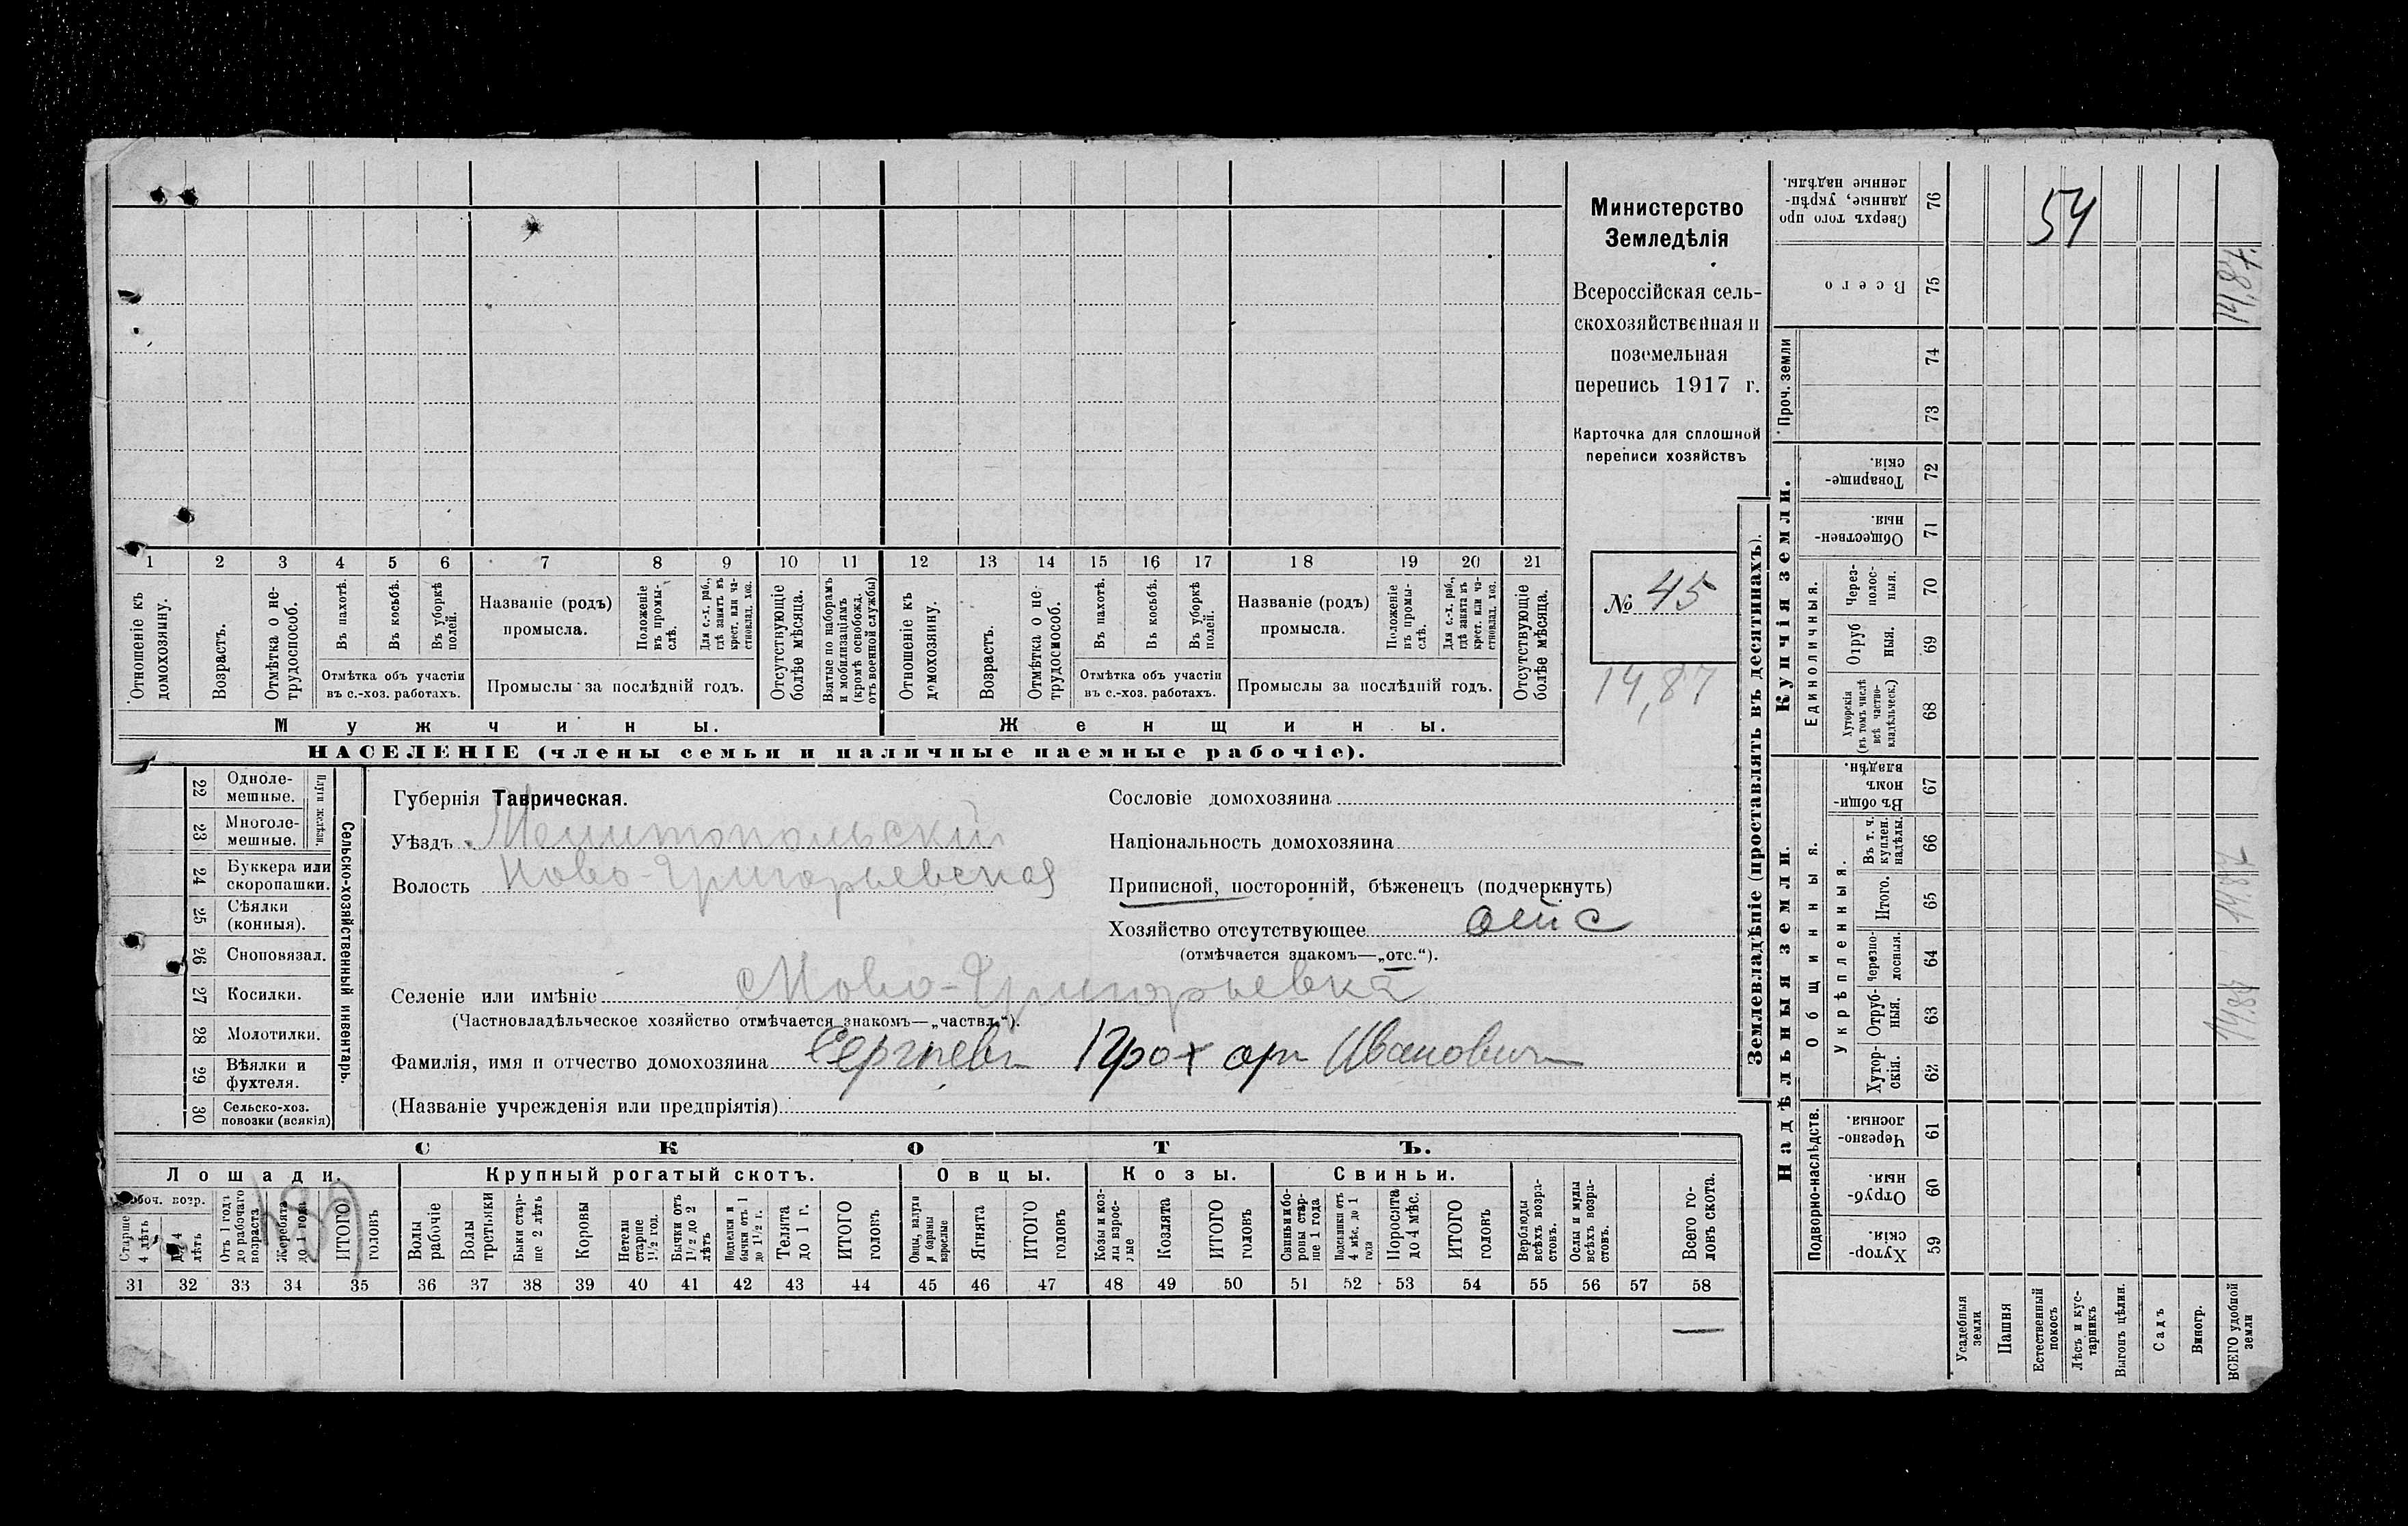 Министерство
Земледѣлія
Всероссійская сель-
скохозяйственная и
поземельная
перепись 1917 г.
Карточка для сплошной
переписи хозяйствъ
№ 45
14,87
1 2 3 4 5 6 7 8 9 10 11 12 13 14 15 16 17 18 19 20 21
Отношеніе къ домохозяину.
Возрастъ.
Отмѣтка о не-трудоспособ.
Въ пахотѣ.
Въ косьбѣ.
Въ уборкѣ полей.
Отмѣтка объ участіи
въ с.-хоз. работахъ.
Названіе (родъ)
промысла.
Положеніе въ промы-слѣ.
Для с.-х. раб., гдѣ занятъ въ крест. или ча-стновлад. хоз.
Промыслы за послѣдній годъ.
Отсутствующіе болѣе мѣсяца.
Взятые по наборамъ и мобилизаціямъ (кромѣ освобожд. отъ военной службы)
Отношеніе къ домохозяину.
Возрастъ.
Отмѣтка о не-трудоспособ.
Въ пахотѣ.
Въ косьбѣ.
Въ уборкѣ полей.
Отмѣтка объ участіи
въ с.-хоз. работахъ.
Названіе (родъ)
промысла.
Положеніе въ промы-слѣ.
Для с.-х. раб., гдѣ занята въ крест. или ча-стновлад. хоз.
Промыслы за послѣдній годъ.
Отсутствующіе болѣе мѣсяца.
Мужчины. Женщины.
НАСЕЛЕНІЕ (члены семьи и наличные наемные рабочіе).
22 Одноле-мешные.
23 Многоле-мешные.
Плуги желѣзн.
24 Буккера или скоропашки.
25 Сѣялки (конныя).
26 Сноповязал.
27 Косилки.
28 Молотилки.
29 Вѣялки и фухтеля.
30 Сельско-хоз. повозки (всякія)
Сельско-хозяйственный инвентарь.
Губернія Таврическая.
Уѣздъ Мелитопольскій
Волость Ново-Григорьевская
Сословіе домохозяина
Національность домохозяина
Приписной, посторонній, бѣженецъ (подчеркнуть)
Хозяйство отсутствующее отс
(отмѣчается знакомъ—„отс.“).
Селеніе или имѣніе Ново-Григорьевка
(Частновладѣльческое хозяйство отмѣчается знакомъ—„частвл.“).
Фамилія, имя и отчество домохозяина Сергѣевъ Прохоръ Ивановичъ
(Названіе учрежденія или предпріятія)
СКОТЪ.
Лошади. Крупный рогатый скотъ. Овцы. Козы. Свиньи.
Рабоч. возр.
Старше 4 лѣтъ
До 4 лѣтъ
Отъ 1 года до рабочаго возраста
Жеребята до 1 года
ИТОГО головъ
Волы рабочіе
Волы третьяки
Быки стар-ше 2 лѣтъ
Коровы
Нетели старше 1½ год.
Бычки отъ 1½ до 2 лѣтъ
Подтелки и бычки отъ 1 до 1½ г.
Телята до 1 г.
ИТОГО головъ
Овцы, валухи и бараны взрослые
Ягнята
ИТОГО головъ
Козы и коз-лы взрос-лые
Козлята
ИТОГО головъ
Свиньи и бо-ровы стар-ше 1 года
Подсвинки отъ 4 мѣс. до 1 года
Поросята до 4 мѣс.
ИТОГО головъ
Верблюды всѣхъ возра-стовъ.
Ослы и мулы всѣхъ возра-стовъ.
Всего го-ловъ скота.
31 32 33 34 35 36 37 38 39 40 41 42 43 44 45 46 47 48 49 50 51 52 53 54 55 56 57 58
—
Землевладѣніе (проставлять въ десятинахъ).
Купчія земли.
Надѣльныя земли.
Сверхъ того про-данные, укрѣп-ленные надѣлы. 76
54
Всего 75
14,87.
Проч. земли
74
73
Товарище-скія. 72
Обществен-ныя. 71
Единоличныя.
Через-полос-ныя. 70
Отруб-ныя. 69
Хуторскія (въ томъ числѣ всѣ частно-владѣльческ.) 68
Общинныя.
Въ общин-номъ владѣн. 67
Укрѣпленныя.
Въ т. ч. куплен. надѣлы. 66
Итого. 65
14,87
Черезпо-лосныя. 64
Отруб-ныя. 63
14,87
Хутор-скія. 62
Подворно-наслѣдств.
Черезпо-лосныя 61
Отруб-ныя. 60
Хутор-скія. 59
Усадебныя земли
Пашня
Естественный покосъ
Лѣсъ и кус-тарникъ
Выгонъ цѣлин.
Садъ
Виногр.
ВСЕГО удобной земли